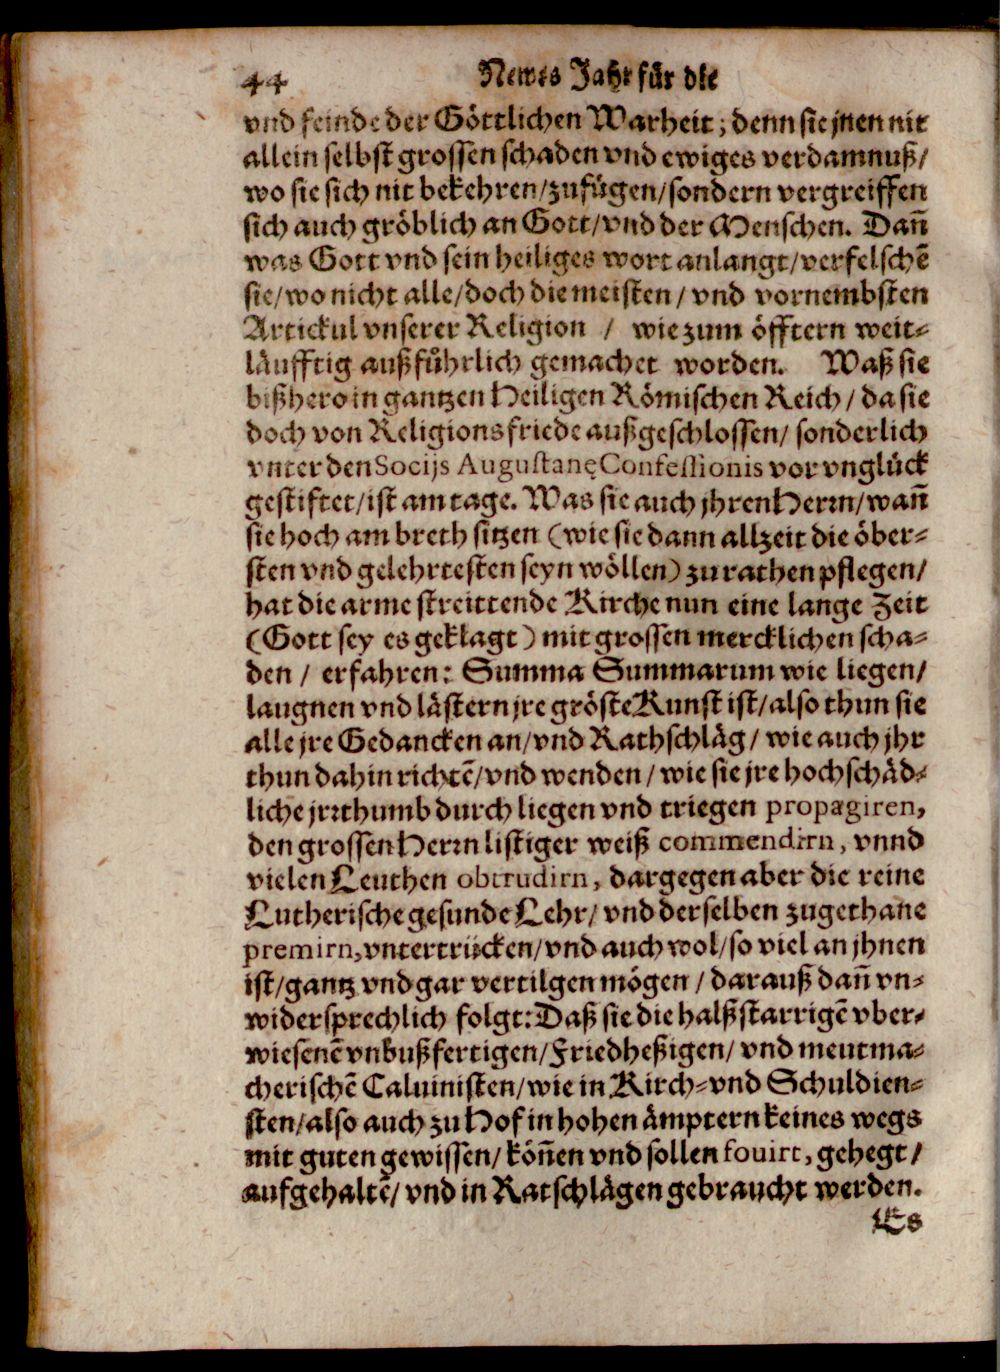 44 Newes Jahr für die
vnd feinde der Göttlichen Warheit; denn sie jnen nit
allein selbst grossen schaden vnd ewiges verdamnuß/
wo sie sich nit bekehren/zufügen/sondern vergreiffen
sich auch gröblich an Gott/vnd der Menschen. Dañ
was Gott vnd sein heiliges wort anlangt/verfelschẽ
sie/wo nicht alle/doch die meisten/ vnd vornembsten
Artickul vnserer Religion / wie zum öfftern weit-
läufftig außführlich gemachet worden. Waß sie
bißhero in gantzen Heiligen Römischen Reich/ da sie
doch von Religionsfriede außgeschlossen/ sonderlich
vnter den Socijs Augustanę Confessionis vor vnglück
gestiftet/ist am tage. Was sie auch jhren Herrn/wañ
sie hoch am breth sitzen (wie sie dann allzeit die öber-
sten vnd gelehrtesten seyn wöllen) zu rathen pflegen/
hat die arme streittende Kirche nun eine lange Zeit
(Gott sey es geklagt) mit grossen mercklichen scha-
den / erfahren: Summa Summarum wie liegen/
laugnen vnd lästern jre gröste Kunst ist/also thun sie
alle jre Gedancken an/vnd Rathschläg/ wie auch jhr
thun dahin richtẽ/vnd wenden/ wie sie jre hochschäd-
liche jrrthumb durch liegen vnd triegen propagiren,
den grossen Herrn listiger weiß commendirn, vnnd
vielen Leuthen obtrudirn, dargegen aber die reine
Lutherische gesunde Lehr/ vnd derselben zugethane
premirn, vntertrücken/vnd auch wol/so viel an jhnen
ist/gantz vnd gar vertilgen mögen / darauß dañ vn-
widersprechlich folgt: Daß sie die halßstarrigẽ vber-
wiesenẽ vnbußfertigen/Friedheßigen/ vnd meutma-
cherischẽ Caluinisten/wie in Kirch-vnd Schuldien-
sten/also auch zu Hof in hohen ämptern keines wegs
mit guten gewissen/ köñen vnd sollen fouirt, gehegt/
aufgehaltẽ/ vnd in Ratschlägen gebraucht werden.
Es